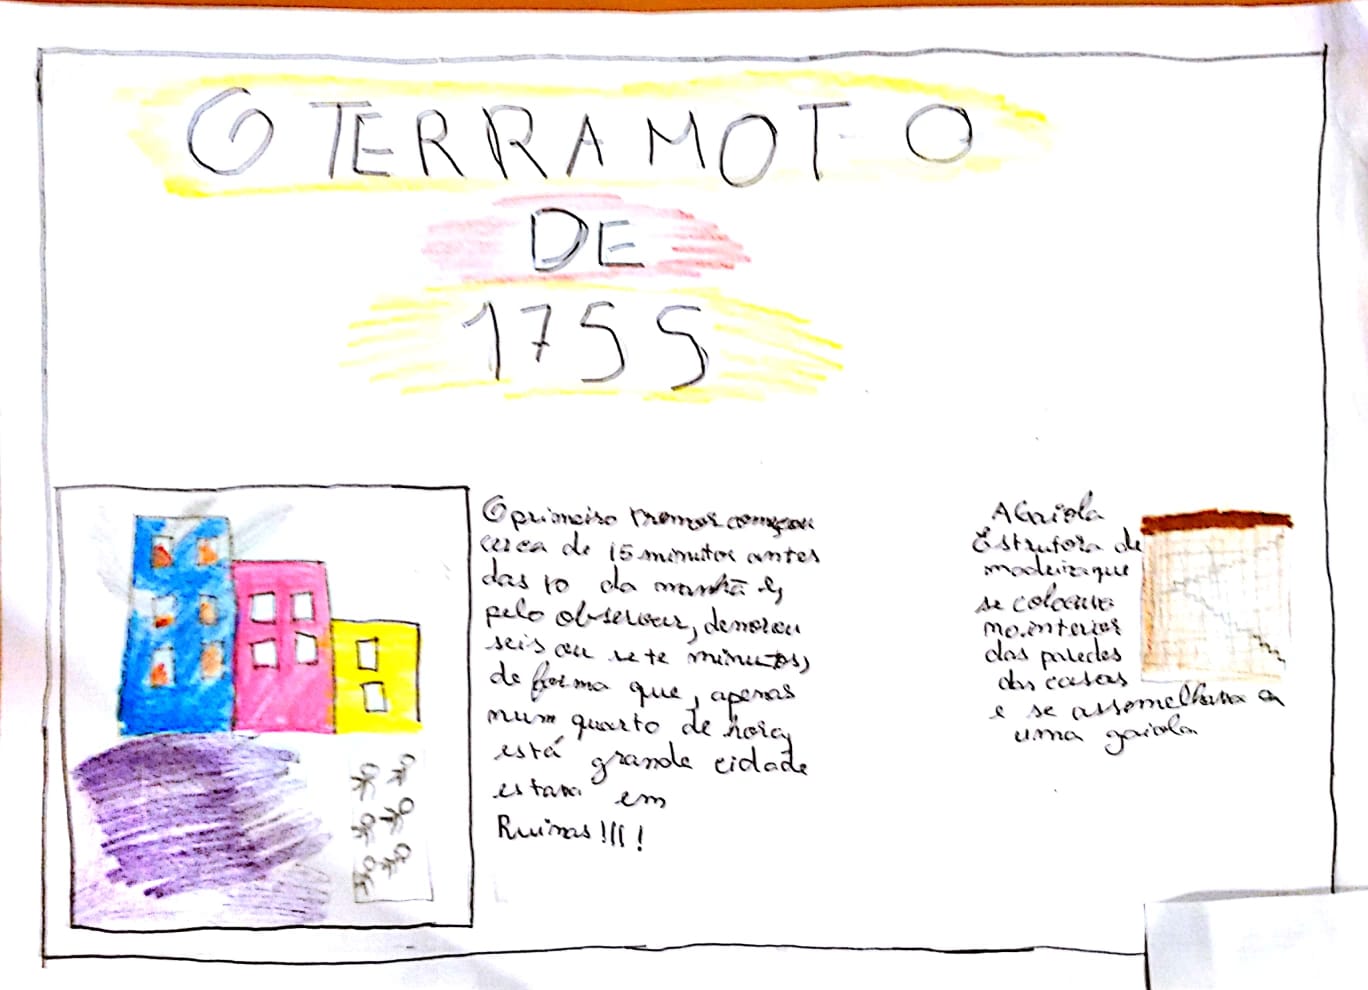 O TERRAMOTO
DE
1755
O primeiro tremor começou
cerca de 15 minutos antes
das 10 da manhã e,
pelo observar, demorou
seis ou sete minutos,
de forma que, apenas
num quarto de hora,
está grande cidade
estava em
Ruinas !!! !
A Gaiola
Estrutora de
madeira que
se colocava
no interior
das paredes
das casas
e se assemelhava a
uma gaiola